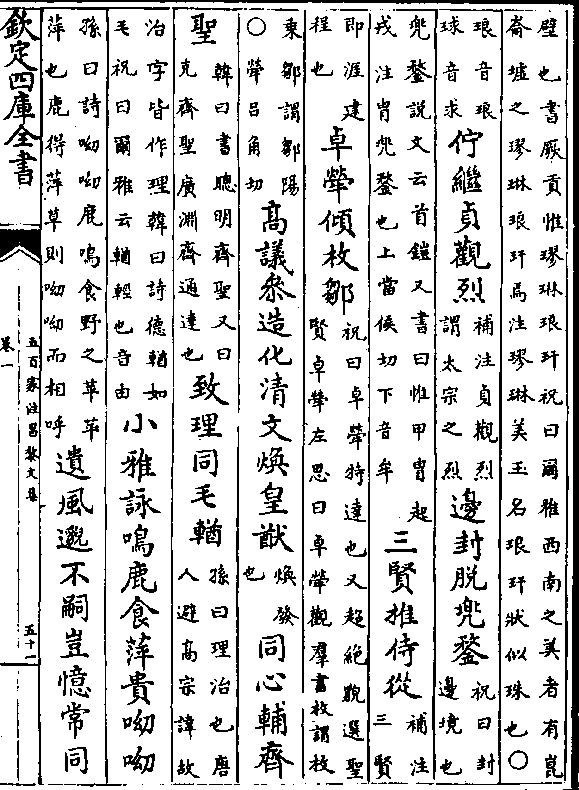 璧也書厥貢惟璆琳琅玕祝曰爾雅西南之美者有崑
崙墟之璆琳琅玕焉注璆琳美玉名琅玕狀似珠也○
琅音琅
球音求
佇繼貞觀烈
補注貞觀烈
謂太宗之烈
邊封脫兜鍪
祝曰封
邊境也
兜鍪說文云首鎧又書曰惟甲冑起
戎注胄兜鍪也上當侯切下音牟
三賢推侍從
補注
三賢
即涯建
程也
卓犖傾枚鄒
祝曰卓犖特達也又超絕貌選聖
賢卓犖左思曰卓犖觀羣書枚謂枚
東鄒謂鄒陽
○犖呂角切
高議參造化清文煥皇猷
煥發
也
同心輔齊
聖
韓曰書聰明齊聖又曰
克齊聖廣淵齊通達也
致理同毛輶
孫曰理治也唐
人避高宗諱故
治字皆作理韓曰詩德輶如
毛祝曰爾雅云輶輕也音由
小雅詠鳴鹿食萍貴呦呦
孫曰詩呦呦鹿鳴食野之苹苹
萍也鹿得萍草則呦呦而相呼
遺風邈不嗣豈憶常同
欽定四庫全書
五百家注昌黎文集
卷一
五十一